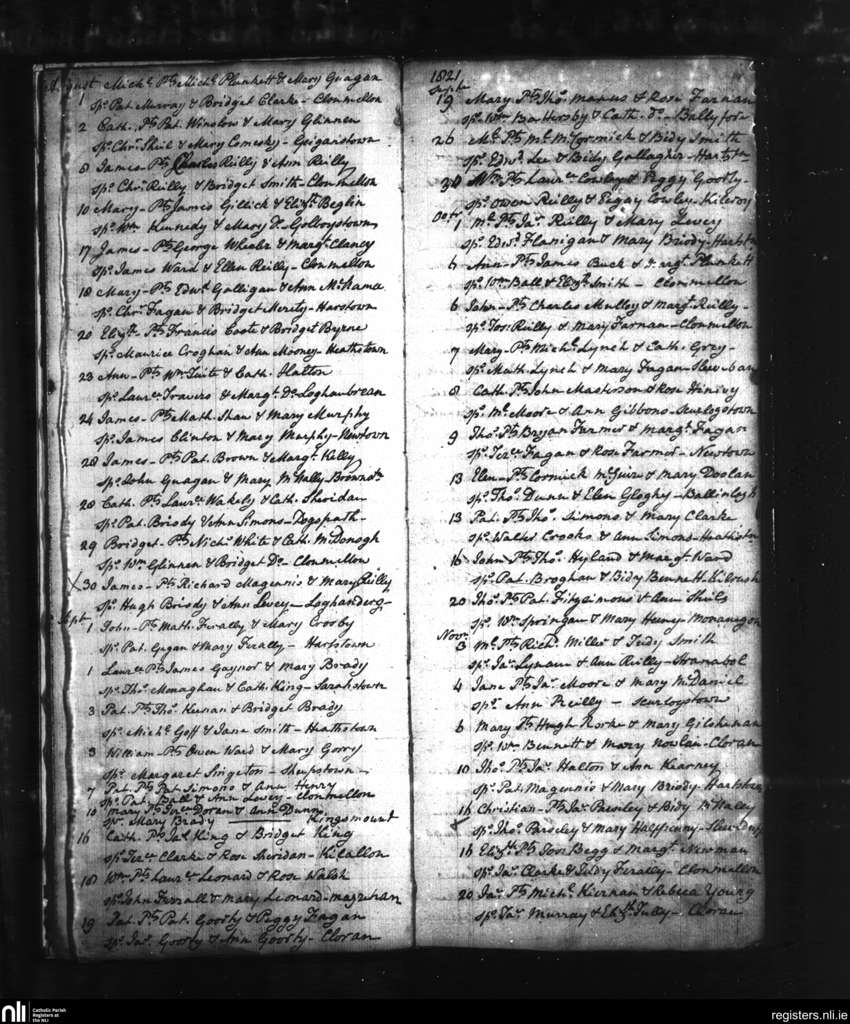 August Mich.l Pts Mich.l Plunkett & Mary Guagan
1 Sps. Pat. Murray & Bridget Clarke - Clonmellon
2 Cath. Pts Pat. Winslow & Mary Glinnen
Sps. Chrs. Shiel & Mary Comesky - Geiganstown
8 James - Pts Charles Reilly & Ann Reilly
Sps. Chrs. Reilly & Bridget Smith - Clonmellon
10 Mary - Pts James Gillick & Elizth. Beglin
Sps. Wm. Kennedy & Mary Do. - Golboystown
17 James - Pts George Wheler & Margt. Clancy
Sps. James Ward & Ellen Reilly - Clonmellon
18 Mary - Pts Edwd. Galligan & Ann
Sps. Chrs. Fagan & Bridget Merety - Harstown
20 Elizth. Pts Francis Coote & Bridget Byrne
Sps. Maurice Croghan & Ann Mooney - Heathstown
23 Ann - Pts Wm. Tuite & Cath. Halton
Sps. Laurce. Travers & Margt. Do. Loghanbrean
24 James - Pts Math. Shaw & Mary Murphy
Sps. James Clinton & Mary Murphy - Newtown
28 James - Pts Pat. Brown & Margt. Kelly
Sps. John Guagan & Mary McNally -
28 Cath. Pts Laurce. Wakely & Cath. Sheridan
Sps. Pat. Briody & Ann Simons - Dogspath -
29 Bridget - Pts Nichs. White & Cath. McDonogh
Sps. Wm. Glinnen & Bridget Do. - Clonmellon
X 30 James - Pts Richard Magennis & Mary Reilly
Sps. Hugh Briody & Ann Levey - Loghanderg -
Sept. 1 John - Pts Math. Ferally & Mary Crosby
Sps. Pat. Gegan & Mary Ferally - Harfstown
1 Laurce. Pts James Gaynor & Mary Brady
Sps. Thos. Monaghan & Cath. King - Sarahstown
3 Pat. Pts Thos. Keenan & Bridget Brady
Sps. Michl. Goff & Jane Smith - Heathstown
3 William - Pts Owen Ward & Mary Gorry
Sps. Margaret Singeton - Sheepstown -
7 Pat. Pts Pat Simons & Ann Henry
Sps. Pat. Ball & Ann Levey - Clonmellon
10 Mary Pts Doran & Ann Dunn
Sps. Mary Brady - Kingsmount
16 Cath. Pts Jas. King & Bridget King
Sps. Clarke & Rose Sheridan - Kilallon
18 Wm. Pts Laurce. Leonard & Rose Walsh
Sps. John Ferrall & Mary Leonard -
19 Pat. Pts Pat. Goorty & Peggy Fagan
Sps. Jas. Goorty & Ann Goorty - Cloran
1821
Septr.
19 Mary Pts Thos. Manus & Rose Farnan
Sps. Wm. Battersby & Cath. Do. - Ballyfore
26 Ml. Pts Ml. McCormick & Bidy Smith
Sps. Edwd. Lee & Bidy Gallagher -
30 Wm. Pts Laurce. Cowley & Peggy Goorty -
Sps. Owen Reilly & Pegay Cowley - Kileroy
Octr. 1 Ml. Pts Jas. Reilly & Mary Levey
Sps. Edwd. Flanigan & Mary Briody -
6 Ann - Pts James Buck & Plunkett
Sps. Wm. Ball & Elizth. Smith - Clonmellon
6 John - Pts Charles Mulley & Margt. Reilly -
Sps. Jos. Reilly & Mary Farnan - Clonmellon
7 Mary - Pts Michl. Lynch & Cath. Grey -
Sps. Math. Lynch & Mary Fagan -
8 Cath. Pts John Masterson & Rose
Sps. Ml. Moore & Ann Gibbons - Scurlogstown
9 Thos. Pts Bryan Farmer & Margt. Fagan
Sps. Fagan & Rose Farmer - Newtown
13 Elen - Pts Cormick McGuire & Mary Doolan
Sps. Thos. Dunn & Elen Gloghy - Ballinlogh
13 Pat. Pts Thos. Simons & Mary Clarke
Sps. Walter Crooke & Ann Simons -
16 John Pts Thos. Hyland & Margt. Ward
Sps. Pat. Broghan & Bidy Bennett -
20 Thos. Pts Pat. Fitzsimons & Ann Shiels
Sps. Wm. Springan & Mary Heney -
Novr. 3 Ml. Pts Richd. Miller & Judy Smith
Sps. Jas. Lynam & Ann Reilly -
4 Jane Pts Jas. Moore & Mary McDaniel
Sps. Ann Reilly - Scurlogstown
6 Mary Pts Hugh Rorke & Mary
Sps. Wm. Bennett & Mary Nowlan - Cloran
10 Thos. Pts Jas. Halton & Ann Kearney
Sps. Pat Magennis & Mary Briody -
16 Christian - Pts Jas. Presley & Bidy
Sps. Thos. Parsley & Mary Halfpenny -
16 Elizth. Pts Jos. Begg & Margt. Newman
Sps. Jas. Clarke & Judy Ferally - Clonmellon
20 Jas. Pts Michl. Kiernan & Rebeca Young
Sps. Jas. Murray & Elizth. Tully - Cloran
nli
Catholic Parish
Registers at
the NLI
registers.nli.ie